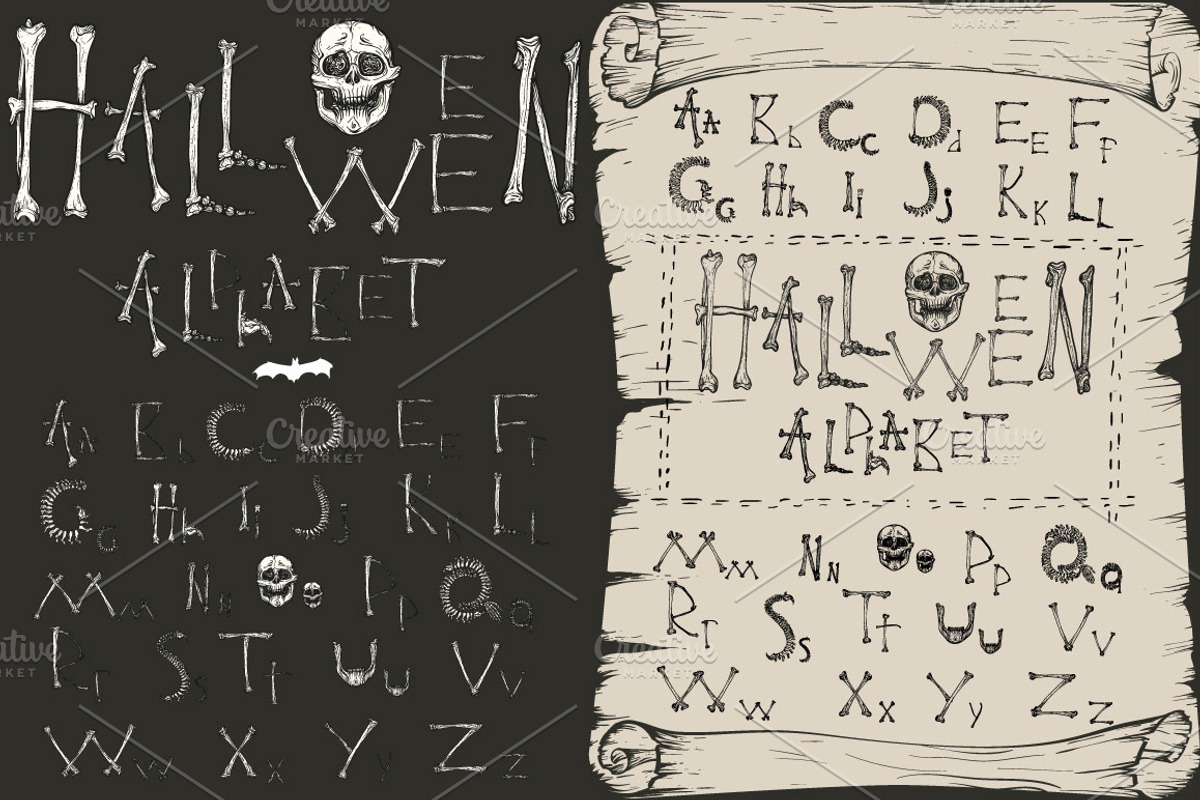 HALLOWEEN
ALPHABET
Aa Bb Cc Dd Ee Ff
Gg Hh Ii Jj Kk Ll
Mm Nn Oo Pp Qq
Rr Ss Tt Uu Vv
Ww Xx Yy Zz
Aa Bb Cc Dd Ee Ff
Gg Hh Ii Jj Kk Ll
HALLOWEEN
ALPHABET
Mm Nn Oo Pp Qq
Rr Ss Tt Uu Vv
Ww Xx Yy Zz
Creative
MARKET
Creative
MARKET
Creative
MARKET
Creative
MARKET
Creative
MARKET
Creative
MARKET